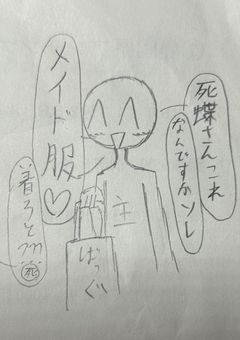 死蝶さんこれ
なんですかソレ
メイド服♡
着ろと
主
ばっぐ